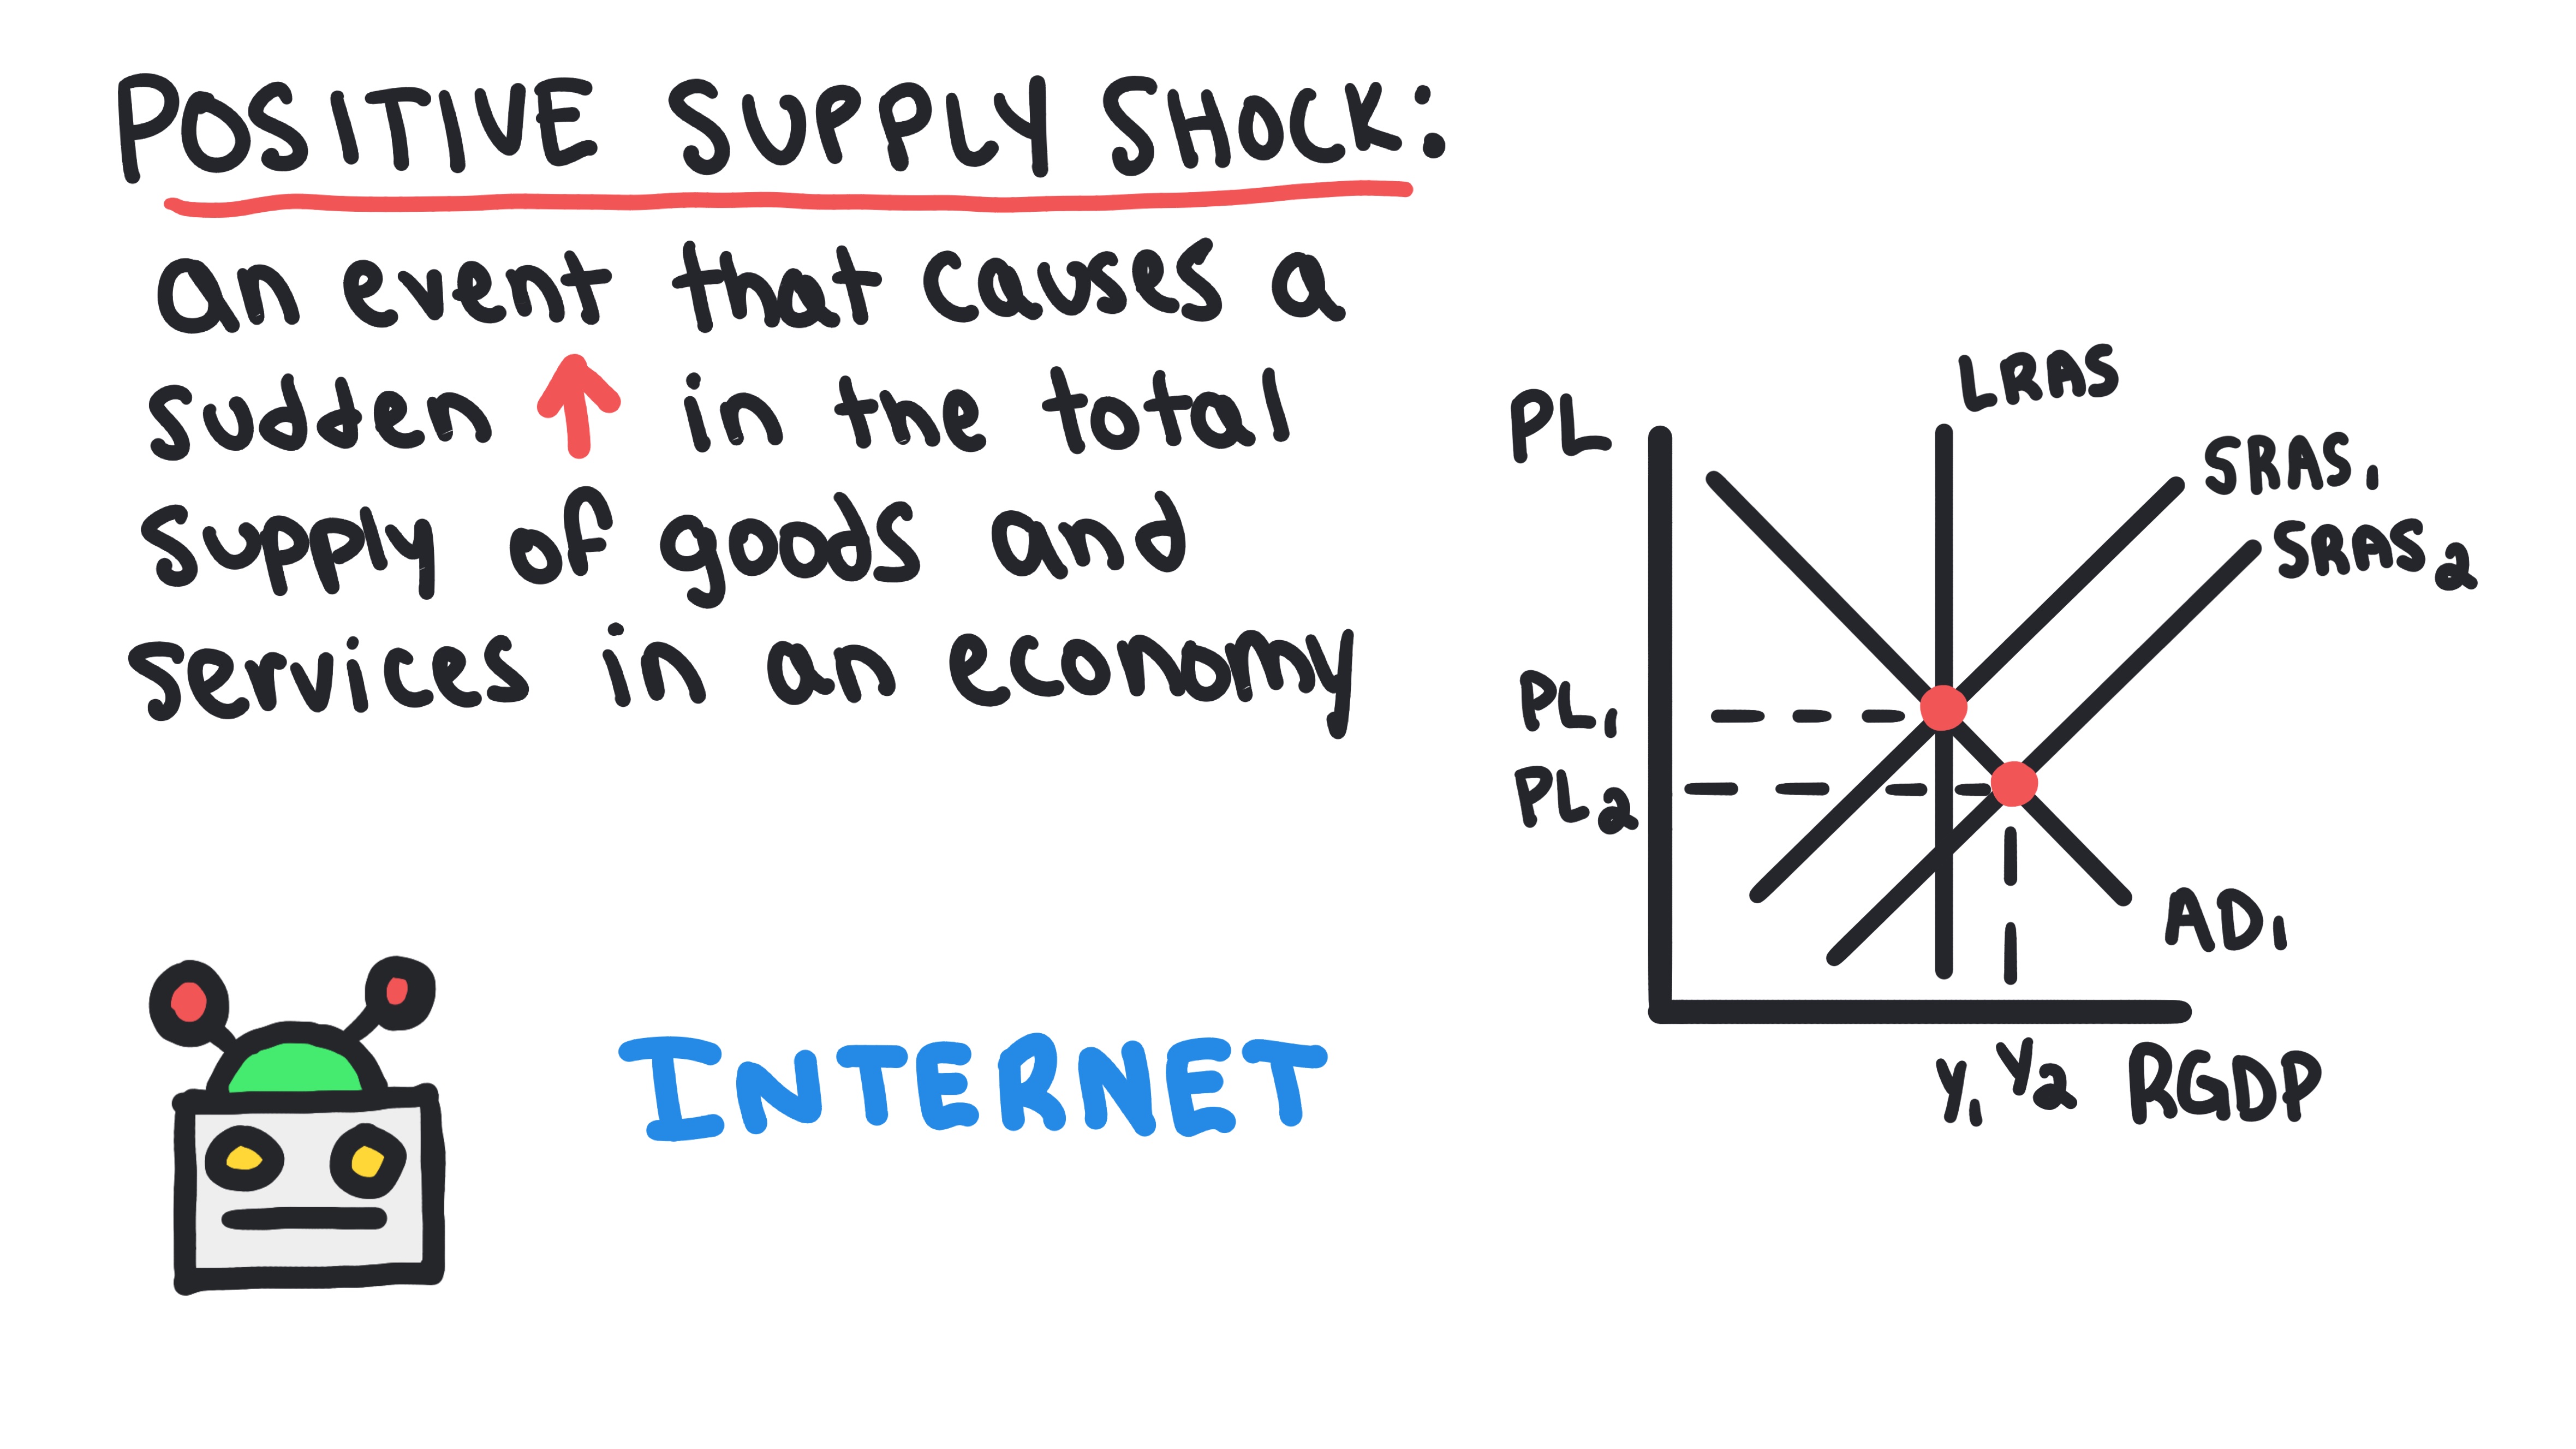 POSITIVE SUPPLY SHOCK:
an event that causes a
sudden ↑ in the total
supply of goods and
services in an economy
INTERNET
PL
LRAS
SRAS₁
SRAS₂
PL₁
PL₂
AD₁
Y₁ Y₂ RGDP